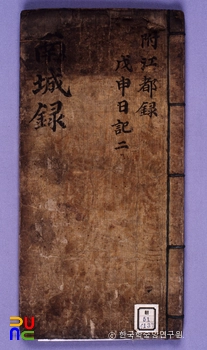 附江都録
戊申日記二
南城録
PUNC
ⓒ한국학중앙연구원